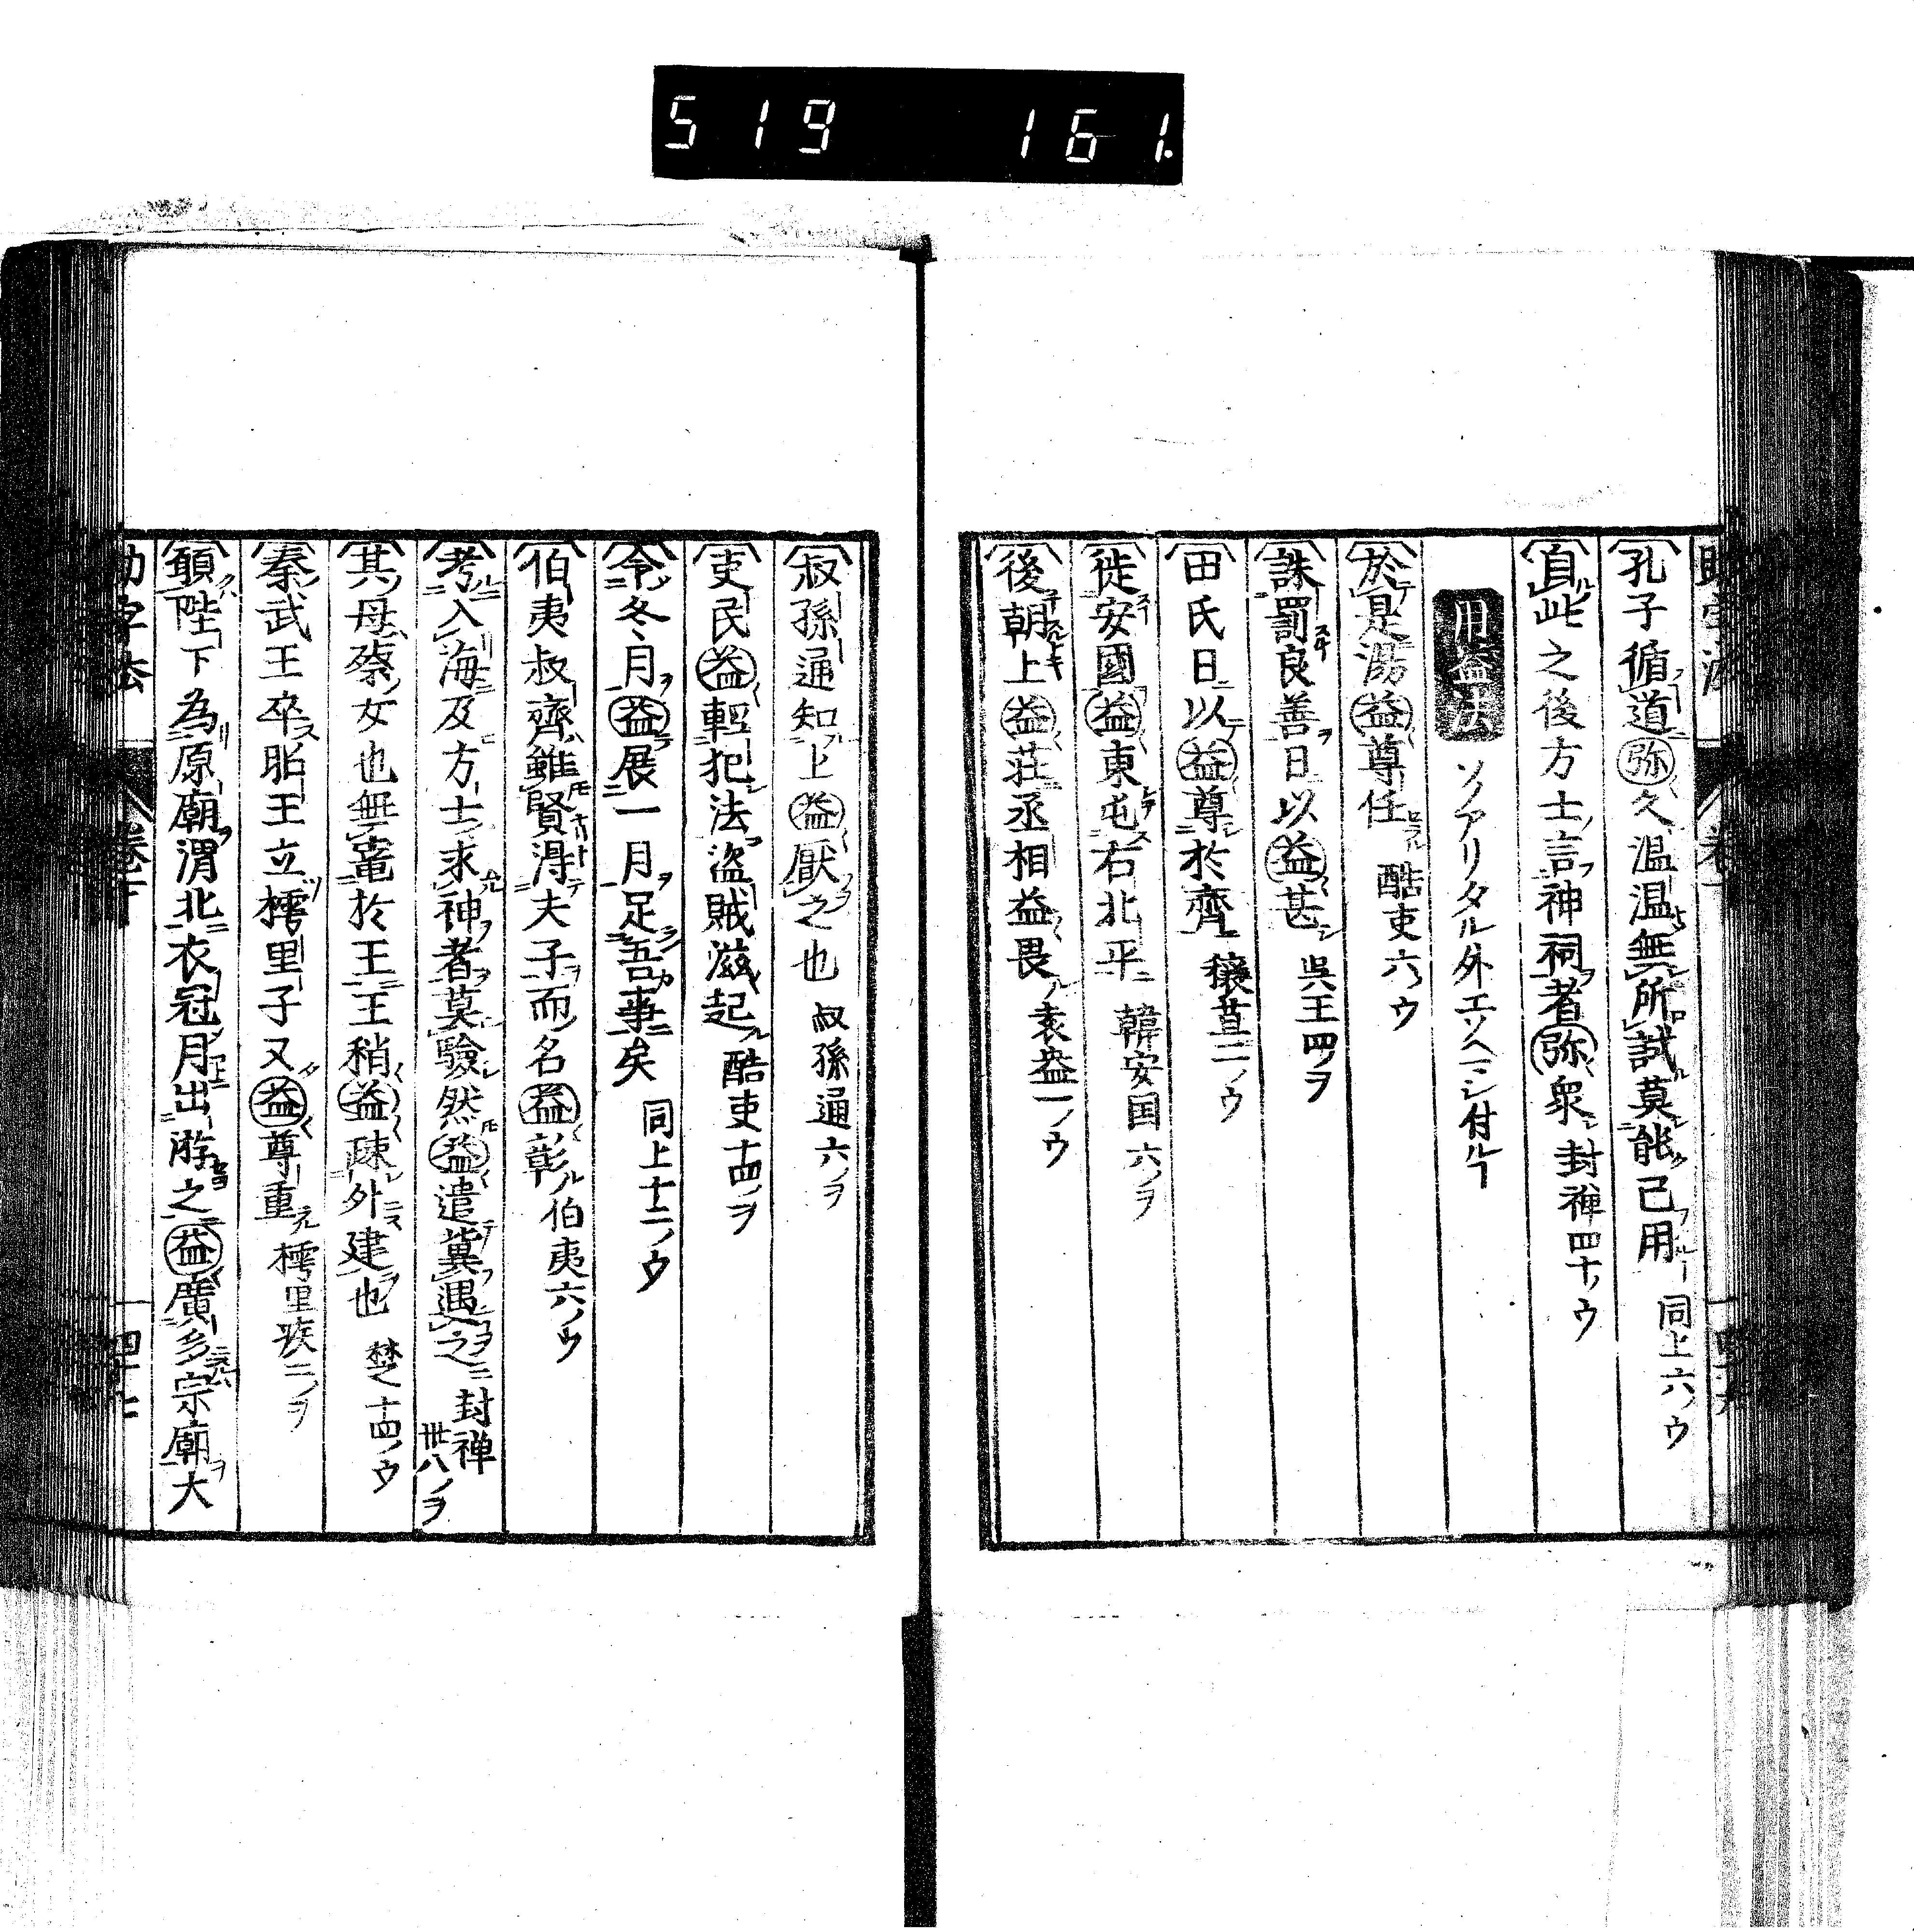 519 161.
孔子循道弥久温温無所試莫能己用 同上六ノウ
自此之後方士言神祠者弥衆 封禅四十ノウ
用益法 ソノアリタル外エソヘマシ付ルヿ
於是湯益尊任 酷吏六ノウ
誅罰良善日以益甚 呉王四ノヲ
田氏日以益尊於齊 穰苴二ノウ
徙安國益東屯右北平 韓安国六ノヲ
後朝上益荘丞相益畏 袁盎一ノウ
叔孫通知上益厭之也 叔孫通六ノヲ
吏民益軽犯法盗賊滋起 酷吏十四ノヲ
令冬月益展一月足吾事矣 同上十二ノウ
伯夷叔齊雖賢得夫子而名益彰 伯夷六ノウ
考入海及方士求神者莫驗然益遣冀遇之 封禅卅八ノヲ
其母蔡女也無寵於王王稍益疎外建也 楚十四ノウ
秦武王卒昭王立樗里子又益尊重 樗里疾二ノヲ
願陛下為原廟渭北衣冠月出游之益廣多宗廟大
助字法 巻下 四十七